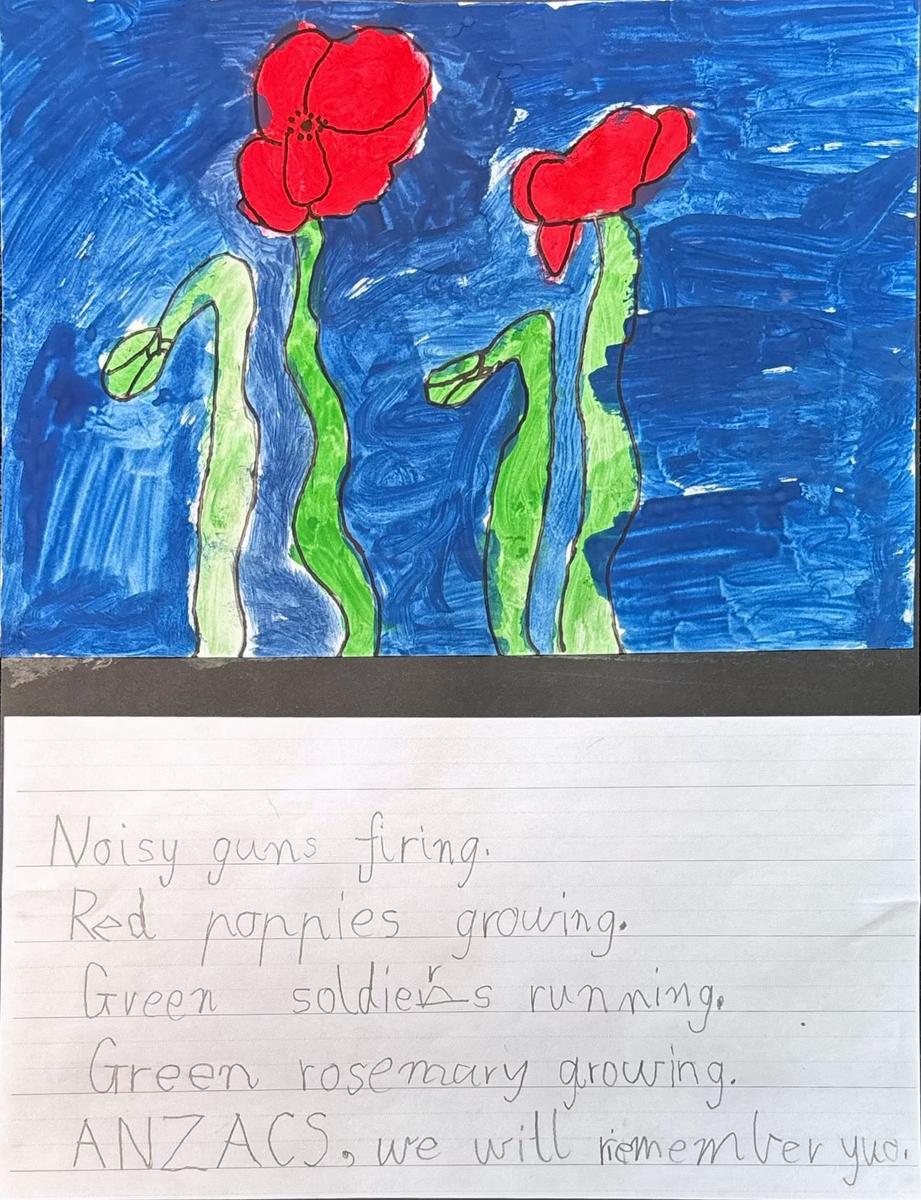 Noisy guns firing.
Red poppies growing.
Green soldiers running.
Green rosemary growing.
ANZACS, we will remember yuo.